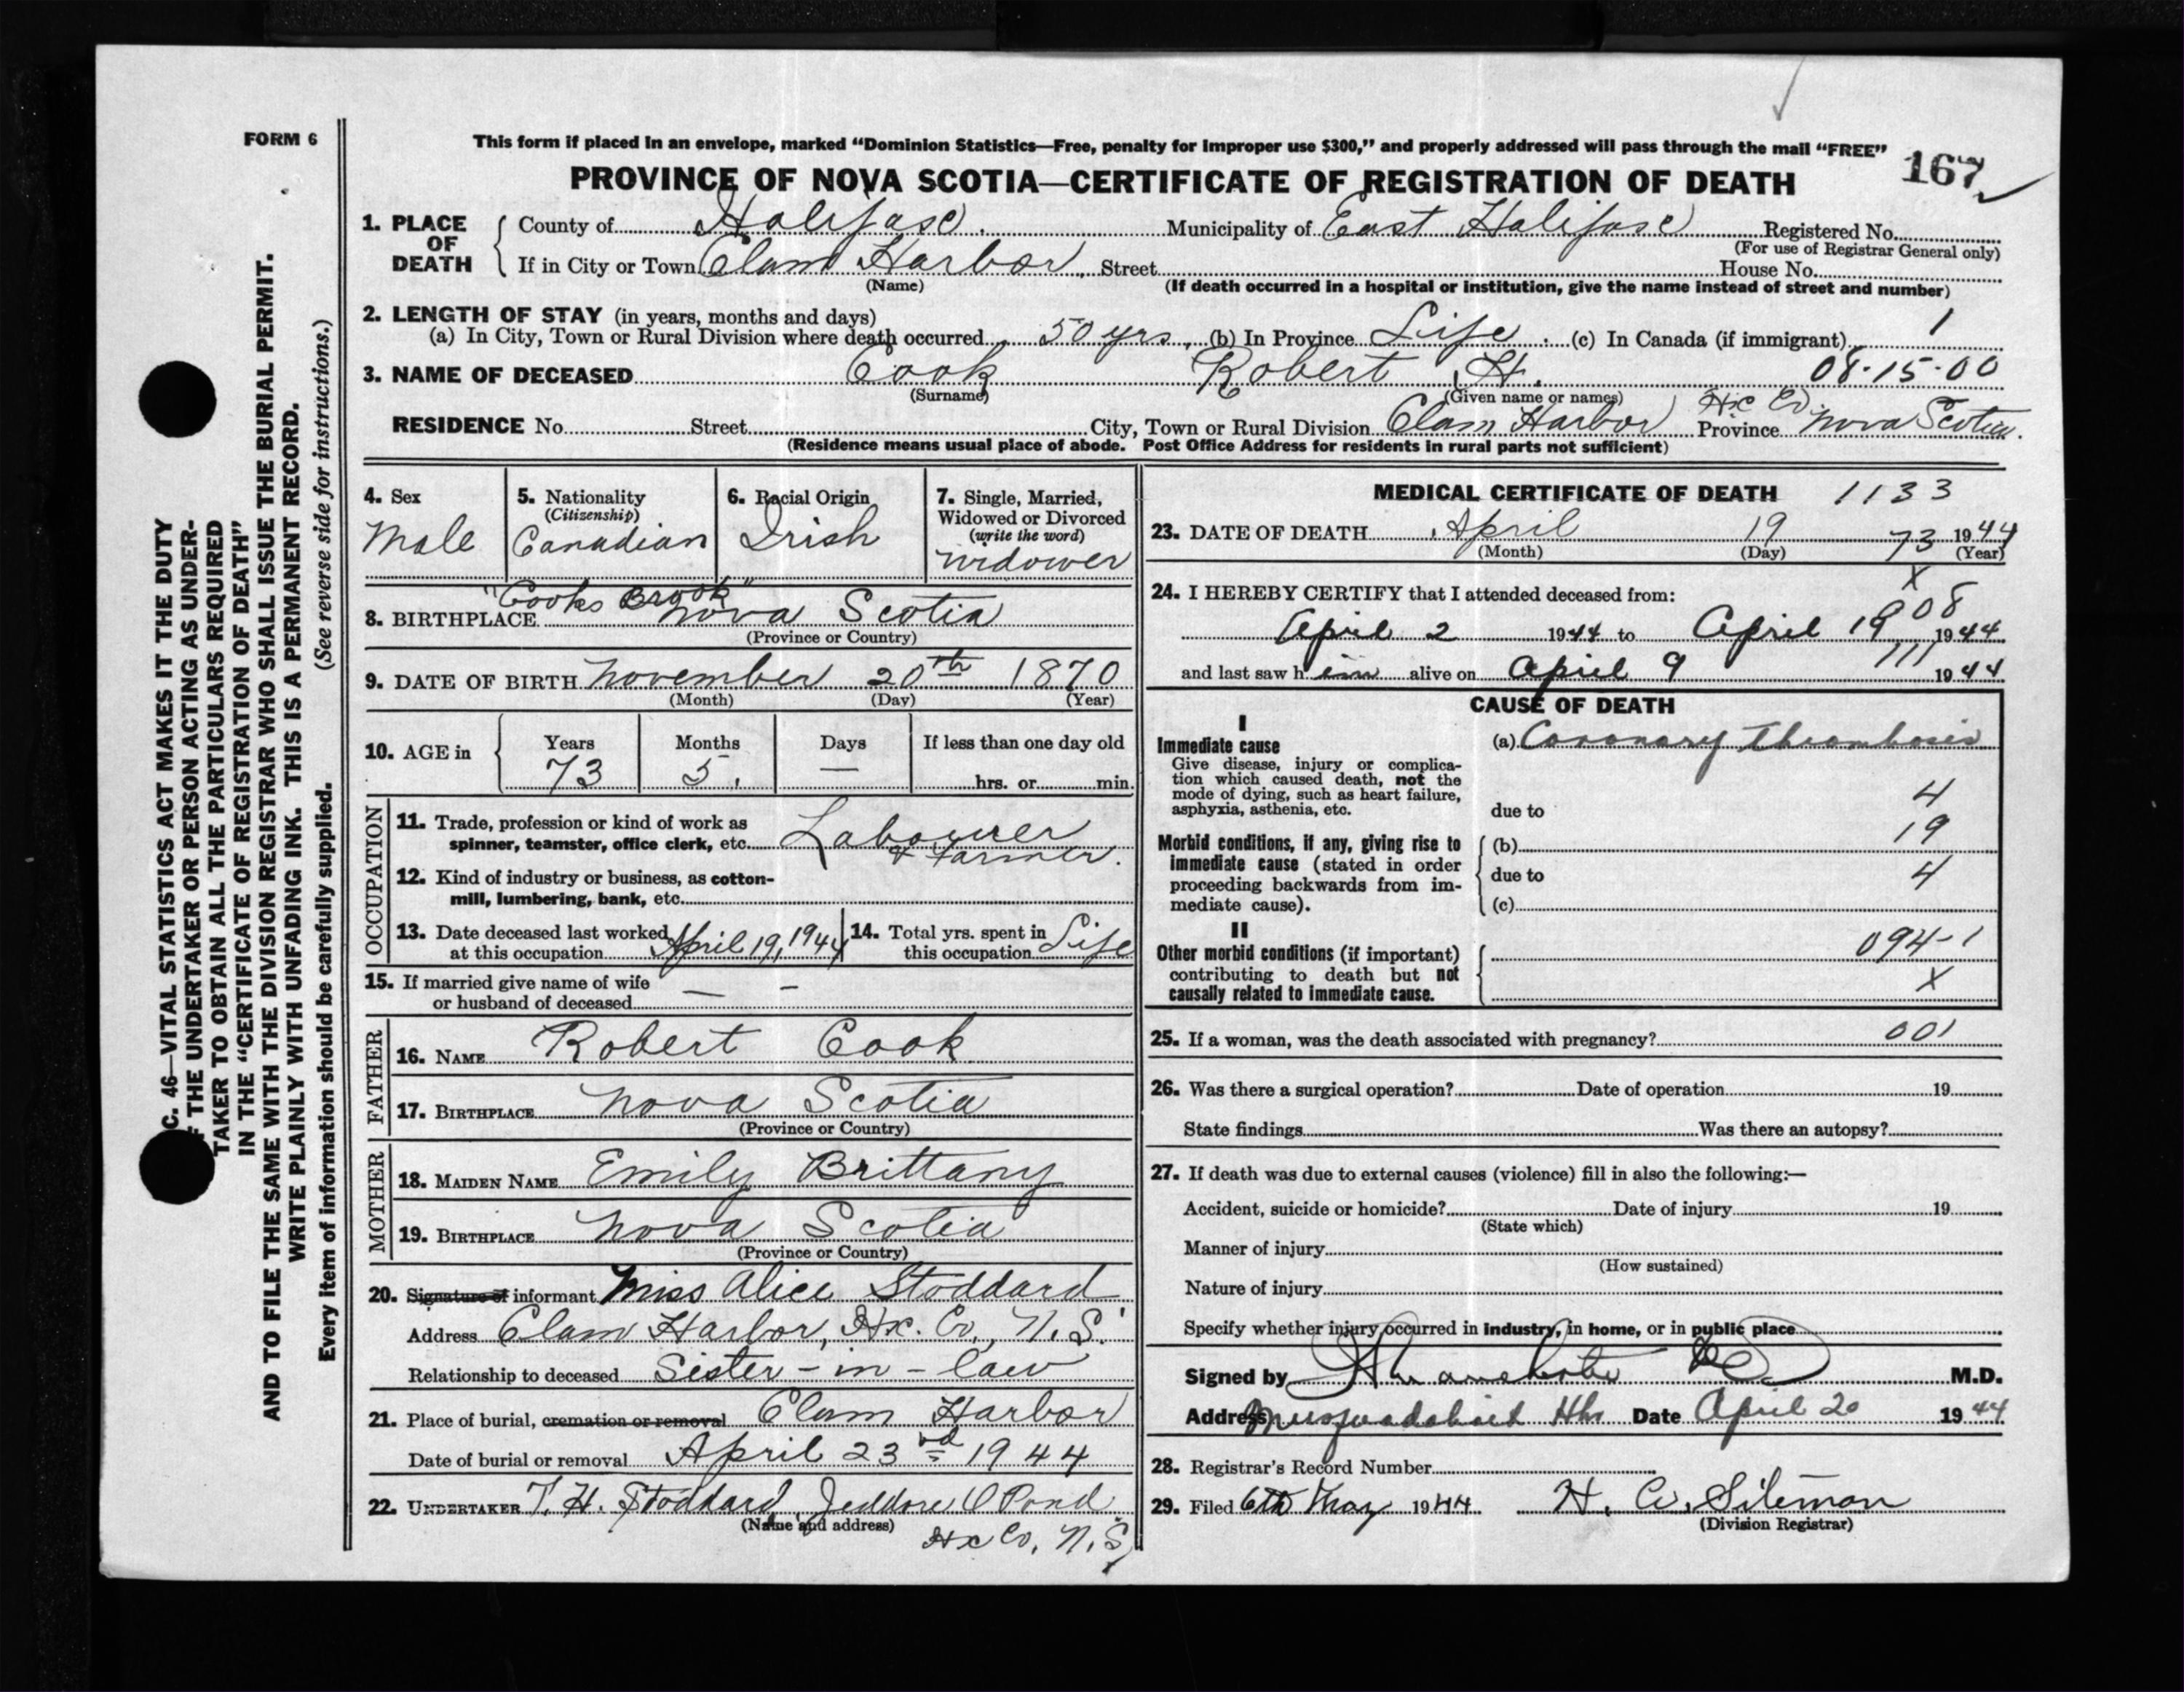 FORM 6
This form if placed in an envelope, marked “Dominion Statistics—Free, penalty for improper use $300,” and properly addressed will pass through the mail “FREE”
PROVINCE OF NOVA SCOTIA—CERTIFICATE OF REGISTRATION OF DEATH
167
1. PLACE OF DEATH
County of Halifax. Municipality of East Halifax Registered No.
(For use of Registrar General only)
If in City or Town Clam Harbor, Street House No.
(Name) (If death occurred in a hospital or institution, give the name instead of street and number)
2. LENGTH OF STAY (in years, months and days)
(a) In City, Town or Rural Division where death occurred 50 yrs. (b) In Province Life. (c) In Canada (if immigrant) 1
3. NAME OF DECEASED Cook Robert H. 08-15-00
(Surname) (Given name or names)
Hx Co.
RESIDENCE No. Street City, Town or Rural Division Clam Harbor Province Nova Scotia.
(Residence means usual place of abode. Post Office Address for residents in rural parts not sufficient)
C. 46—VITAL STATISTICS ACT MAKES IT THE DUTY
F THE UNDERTAKER OR PERSON ACTING AS UNDER-
TAKER TO OBTAIN ALL THE PARTICULARS REQUIRED
IN THE “CERTIFICATE OF REGISTRATION OF DEATH”
AND TO FILE THE SAME WITH THE DIVISION REGISTRAR WHO SHALL ISSUE THE BURIAL PERMIT.
WRITE PLAINLY WITH UNFADING INK. THIS IS A PERMANENT RECORD.
Every item of information should be carefully supplied. (See reverse side for instructions.)
4. Sex
Male
5. Nationality
(Citizenship)
Canadian
6. Racial Origin
Irish
7. Single, Married,
Widowed or Divorced
(write the word)
Widower
"Cooks Brook"
8. BIRTHPLACE Nova Scotia
(Province or Country)
9. DATE OF BIRTH November 20th 1870
(Month) (Day) (Year)
10. AGE in
Years Months Days If less than one day old
73 5. — hrs. or min.
OCCUPATION
11. Trade, profession or kind of work as
spinner, teamster, office clerk, etc. Labourer
& Farmer.
12. Kind of industry or business, as cotton-
mill, lumbering, bank, etc.
13. Date deceased last worked
at this occupation April 19, 1944
14. Total yrs. spent in
this occupation Life
15. If married give name of wife
or husband of deceased — -
FATHER
16. NAME Robert Cook
17. BIRTHPLACE Nova Scotia
(Province or Country)
MOTHER
18. MAIDEN NAME Emily Brittany
19. BIRTHPLACE Nova Scotia
(Province or Country)
20. Signature of informant Miss Alice Stoddard
Address Clam Harbor, Hx. Co., N.S.
Relationship to deceased Sister-in-law
21. Place of burial, cremation or removal Clam Harbor
Date of burial or removal April 23rd 1944
22. UNDERTAKER T. H. Stoddard Jeddore O Pond
(Name and address)
Hx Co, N.S,
MEDICAL CERTIFICATE OF DEATH 1133
23. DATE OF DEATH April 19 1944
(Month) (Day) 73 (Year)
X
24. I HEREBY CERTIFY that I attended deceased from:
08
April 2 1944 to April 19 1944
111
and last saw him alive on April 9 1944
CAUSE OF DEATH
I
Immediate cause
Give disease, injury or complica-
tion which caused death, not the
mode of dying, such as heart failure,
asphyxia, asthenia, etc.
(a) Coronary Thrombosis
4
due to
19
Morbid conditions, if any, giving rise to
immediate cause (stated in order
proceeding backwards from im-
mediate cause).
(b)
due to 4
(c)
II
Other morbid conditions (if important)
contributing to death but not
causally related to immediate cause.
094-1
X
25. If a woman, was the death associated with pregnancy? 001
26. Was there a surgical operation? Date of operation 19
State findings Was there an autopsy?
27. If death was due to external causes (violence) fill in also the following:—
Accident, suicide or homicide? Date of injury 19
(State which)
Manner of injury
(How sustained)
Nature of injury
Specify whether injury occurred in industry, in home, or in public place
Signed by M.D.
Address Musquodoboit Hbr Date April 20 1944
28. Registrar's Record Number
29. Filed 6th May 1944 H. W. Siteman
(Division Registrar)